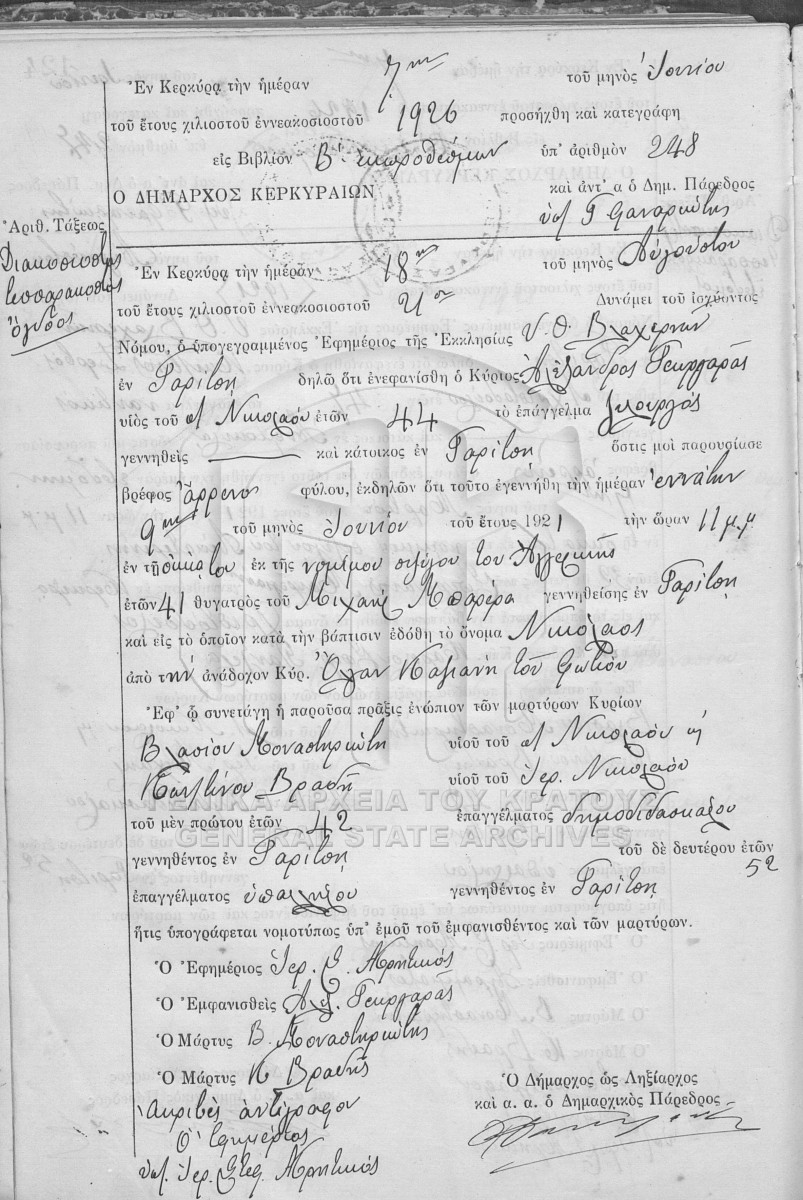 Ἐν Κερκύρᾳ τὴν ἡμέραν 7ην τοῦ μηνὸς Ἰουνίου
τοῦ ἔτους χιλιοστοῦ ἐννεακοσιοστοῦ 1926 προσήχθη καὶ κατεγράφη
εἰς Βιβλίον Βʹ ἐκπροθέσμων ὑπ' ἀριθμὸν 248
Ο ΔΗΜΑΡΧΟΣ ΚΕΡΚΥΡΑΙΩΝ
καὶ ἀντ' α ὁ Δημ. Πάρεδρος
Ἀριθ. Τάξεως
Διακοσιοστὸς
τεσσαρακοστὸς
ὄγδοος
Ἐν Κερκύρᾳ τὴν ἡμέραν 18ην τοῦ μηνὸς Αὐγούστου
τοῦ ἔτους χιλιοστοῦ ἐννεακοσιοστοῦ 21ου Δυνάμει τοῦ ἰσχύοντος
Νόμου, ὁ ὑπογεγραμμένος Ἐφημέριος τῆς Ἐκκλησίας Υ. Θ. Βλαχερνῶν
ἐν Γαρίτσῃ δηλῶ ὅτι ἐνεφανίσθη ὁ Κύριος Ἀλέξανδρος Γεωργαρᾶς
υἱὸς τοῦ Νικολάου ἐτῶν 44 τὸ ἐπάγγελμα
γεννηθεὶς καὶ κάτοικος ἐν Γαρίτσῃ ὅστις μοὶ παρουσίασε
βρέφος ἄρρενος φύλου, ἐκδηλῶν ὅτι τοῦτο ἐγεννήθη τὴν ἡμέραν ἐννάτην
9ην τοῦ μηνὸς Ἰουνίου τοῦ ἔτους 1921 τὴν ὥραν 11 μ.μ.
ἐν τῇ οἰκίᾳ του ἐκ τῆς νομίμου συζύγου του Ἀγγερικῆς
ἐτῶν 41 θυγατρὸς τοῦ Μιχαὴλ Μπαρέρα γεννηθείσης ἐν Γαρίτσῃ
καὶ εἰς τὸ ὁποῖον κατὰ τὴν βάπτισιν ἐδόθη τὸ ὄνομα Νικόλαος
ἀπὸ τὴν ἀνάδοχον Κύρ. Ὄλγαν τοῦ Φωτίου
Ἐφ' ᾧ συνετάγη ἡ παροῦσα πρᾶξις ἐνώπιον τῶν μαρτύρων Κυρίων
Βλασίου Μοναστηριώτη υἱοῦ τοῦ Νικολάου ἢ
Κων/τίνου Βραδῆ υἱοῦ τοῦ Ἱερ. Νικολάου
ΓΕΝΙΚΑ ΑΡΧΕΙΑ ΤΟΥ ΚΡΑΤΟΥΣ
τοῦ μὲν πρώτου ἐτῶν 42 ἐπαγγέλματος δημοδιδασκάλου
GENERAL STATE ARCHIVES
γεννηθέντος ἐν Γαρίτσῃ τοῦ δὲ δευτέρου ἐτῶν 52
ἐπαγγέλματος ὑπαλλήλου γεννηθέντος ἐν Γαρίτσῃ
ἥτις ὑπογράφεται νομοτύπως ὑπ' ἐμοῦ τοῦ ἐμφανισθέντος καὶ τῶν μαρτύρων.
Ὁ Ἐφημέριος Ἱερ. Σ.
Ὁ Ἐμφανισθεὶς Ἀλέξ. Γεωργαρᾶς
Ὁ Μάρτυς Β. Μοναστηριώτης
Ὁ Μάρτυς Κ. Βραδῆς
Ἀκριβὲς ἀντίγραφον
Ὁ Ἐφημέριος
Ὁ Δήμαρχος ὡς Ληξίαρχος
καὶ α. α. ὁ Δημαρχικὸς Πάρεδρος